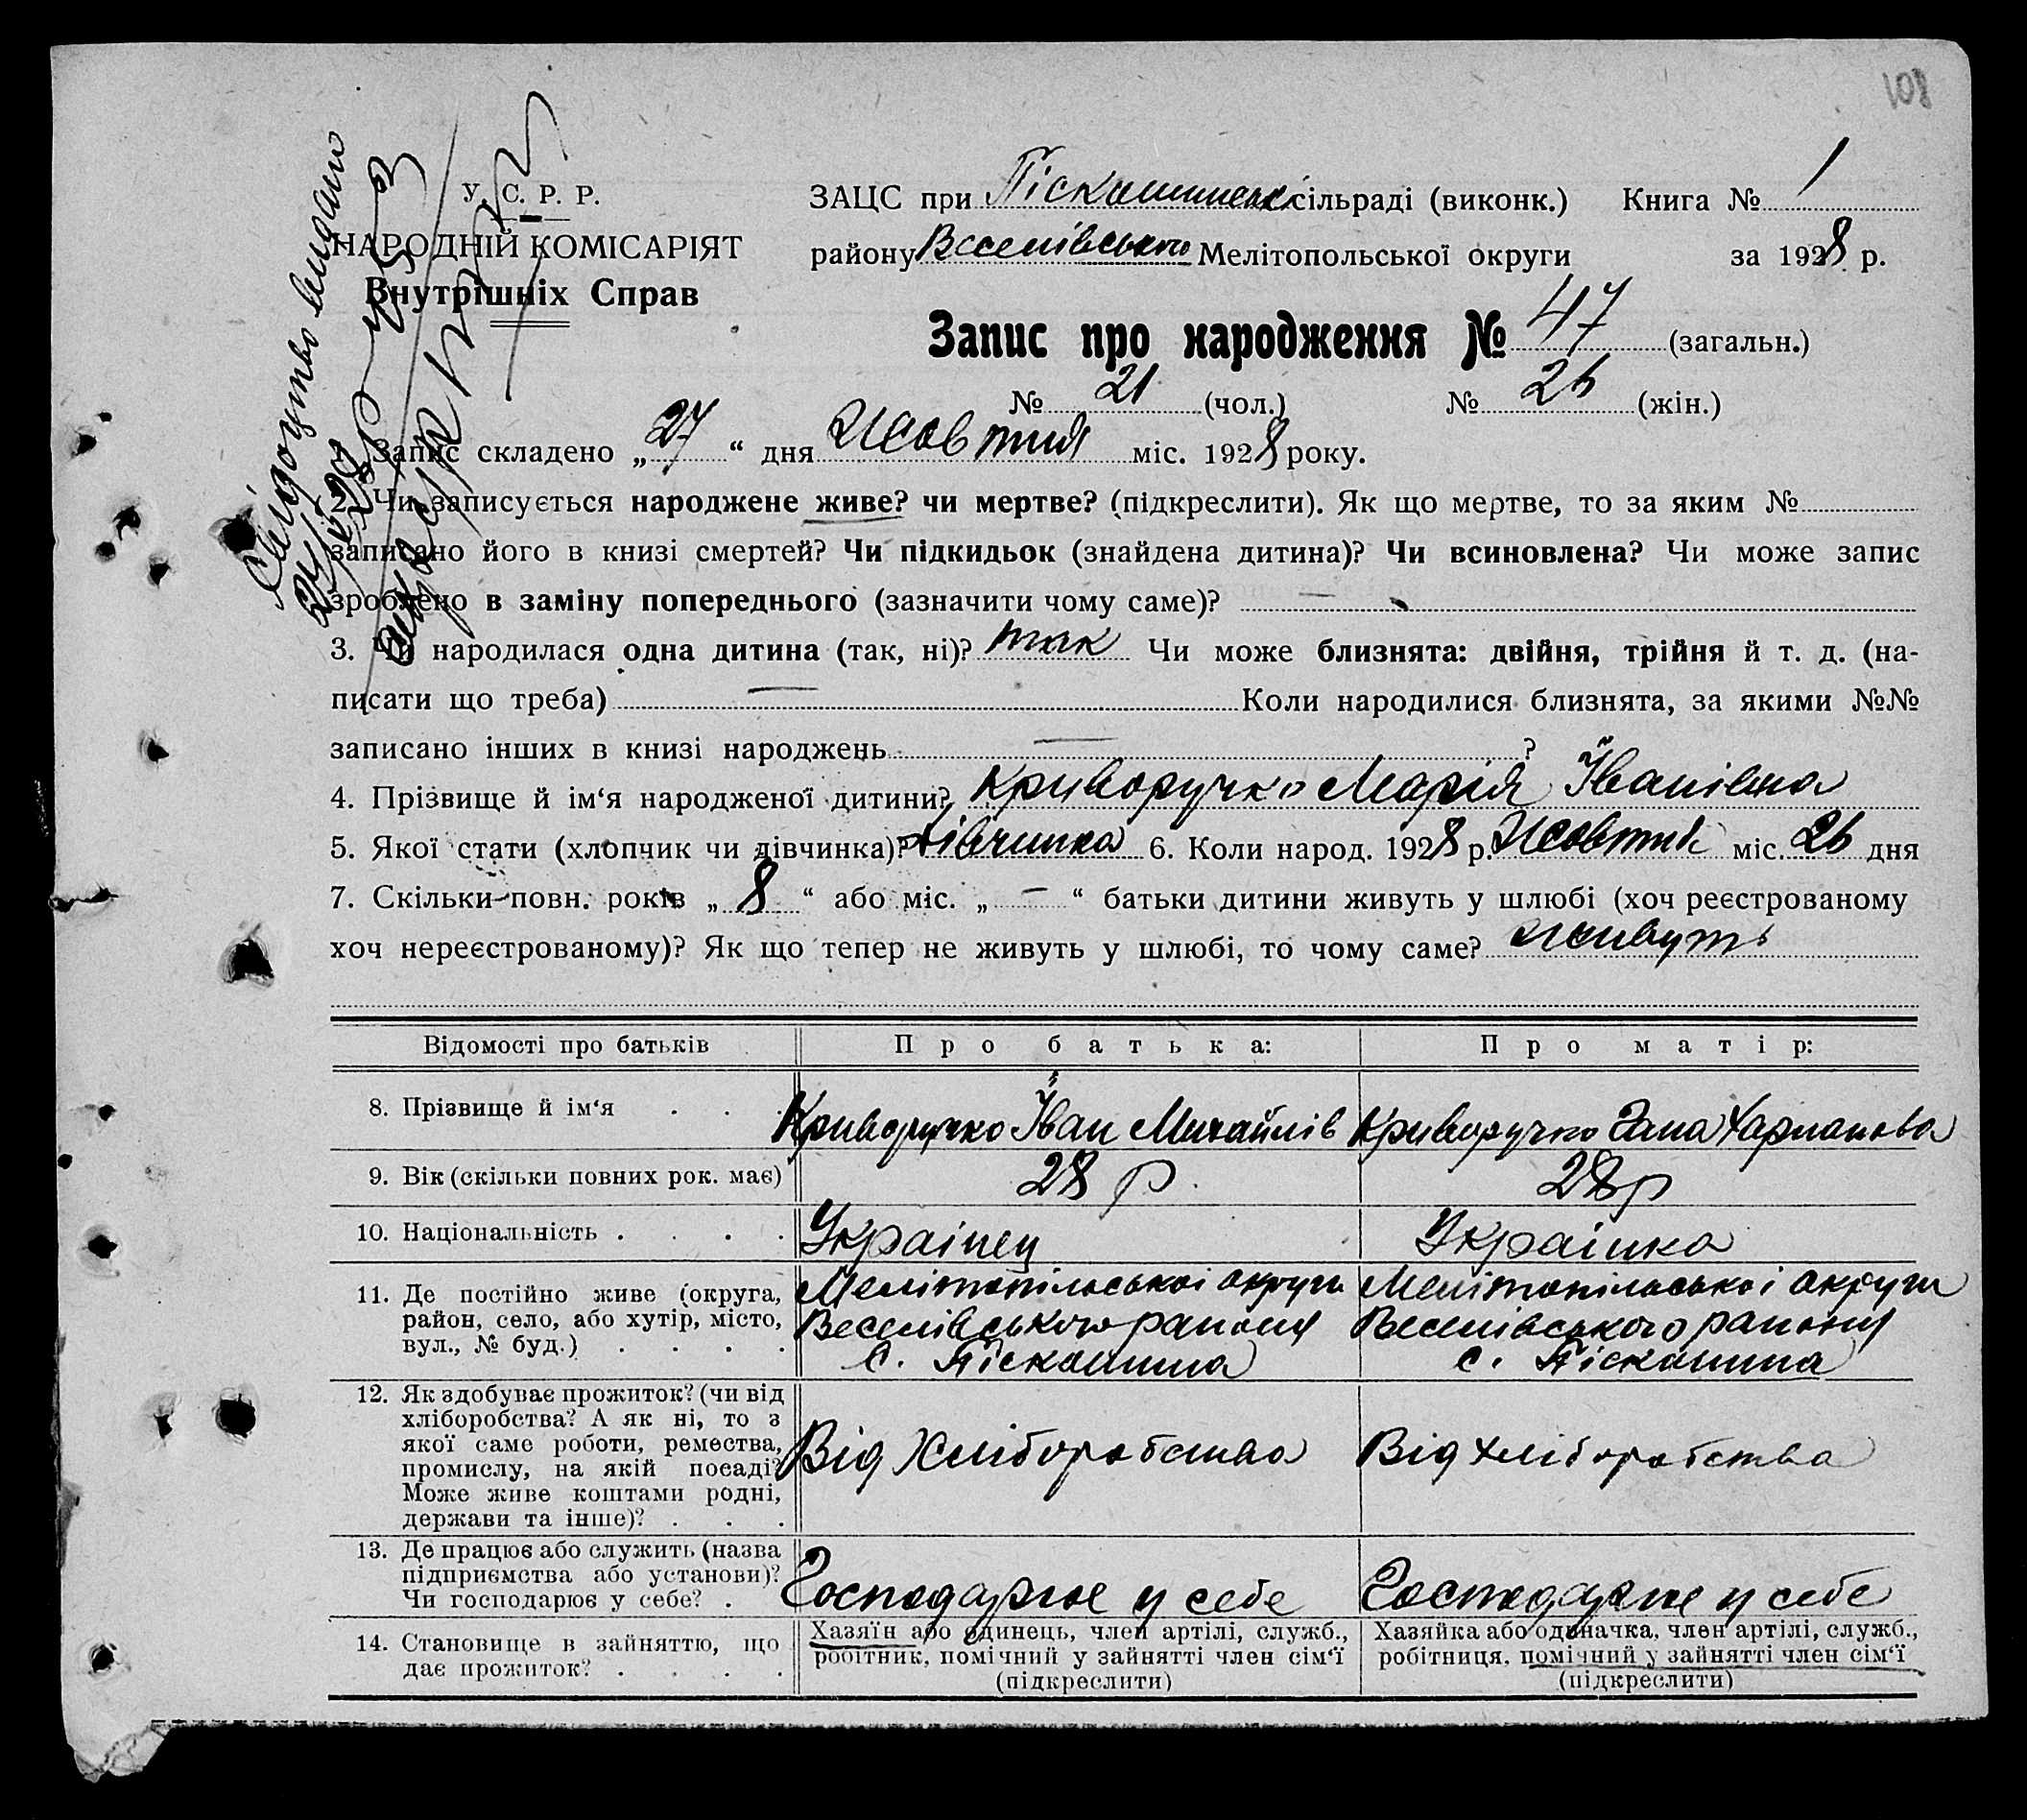 108
У. С. Р. Р.
НАРОДНІЙ КОМІСАРІЯТ
Внутрішніх Справ
Свідоцтво видано
ЗАЦС при Піскошинськ. сільраді (виконк.) Книга № 1
району Веселівського Мелітопольської округи за 1928 р.
Запис про народження № 47 (загальн.)
№ 21 (чол.) № 26 (жін.)
Запис складено „27“ дня Жовтня міс. 1928 року.
2. Чи записується народжене живе? чи мертве? (підкреслити). Як що мертве, то за яким №
записано його в книзі смертей? Чи підкидьок (знайдена дитина)? Чи всиновлена? Чи може запис
зроблено в заміну попереднього (зазначити чому саме)? —
3. Чи народилася одна дитина (так, ні)? так Чи може близнята: двійня, трійня й т. д. (на-
писати що треба) — Коли народилися близнята, за якими №№
записано інших в книзі народжень — ?
4. Прізвище й ім‘я народженої дитини? Криворучко Марія Іванівна
5. Якої стати (хлопчик чи дівчинка)? дівчинка 6. Коли народ. 1928 р. Жовтня міс. 26 дня
7. Скільки повн. років „8“ або міс. „—“ батьки дитини живуть у шлюбі (хоч реєстрованому
хоч нереєстрованому)? Як що тепер не живуть у шлюбі, то чому саме? живуть
Відомості про батьків Про батька: Про матір:
8. Прізвище й ім‘я Криворучко Іван Михайлів Криворучко Гана Харпанова
9. Вік (скільки повних рок. має) 28 р. 28 р
10. Національність Украінец Украінка
11. Де постійно живе (округа, Мелітопільськоі округи Мелітопільськоі округи
район, село, або хутір, місто, Веселівського раионя Веселівського раионя
вул., № буд.) с. Піскошина с. Піскошина
12. Як здобуває прожиток? (чи від
хліборобства? А як ні, то з
якої саме роботи, ремества, Від Хліборобства Від хліборобства
промислу, на якій посаді?
Може живе коштами родні,
держави та інше)?
13. Де працює або служить (назва
підприємства або установи)?
Чи господарює у себе? Господарює у себе Господарює у себе
14. Становище в зайняттю, що Хазяїн або одинець, член артілі, служб., Хазяйка або одиначка, член артілі, служб.,
дає прожиток? робітник, помічний у зайнятті член сім‘ї робітниця, помічний у зайнятті член сім‘ї
(підкреслити) (підкреслити)